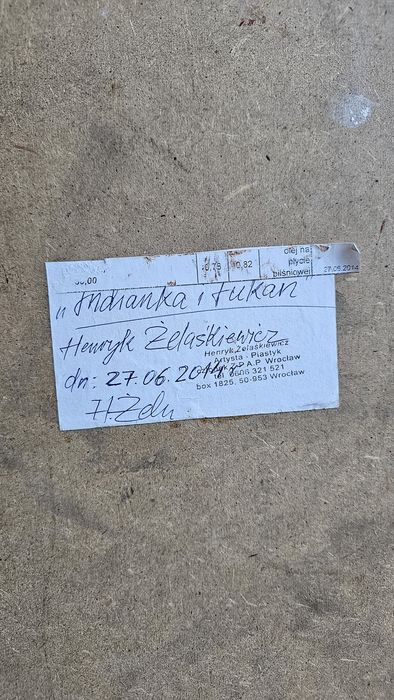 olej na
0,78 0,82 płycie
pilśniowej 27.06.2014
„Indianka i tukan"
Henryk Żelaśkiewicz
Henryk Żelaśkiewicz
Artysta - Plastyk
dn: 27.06.2014 r. Z.P A.P. Wrocław
tel 0606 321 521
box 1825, 50-953 Wrocław